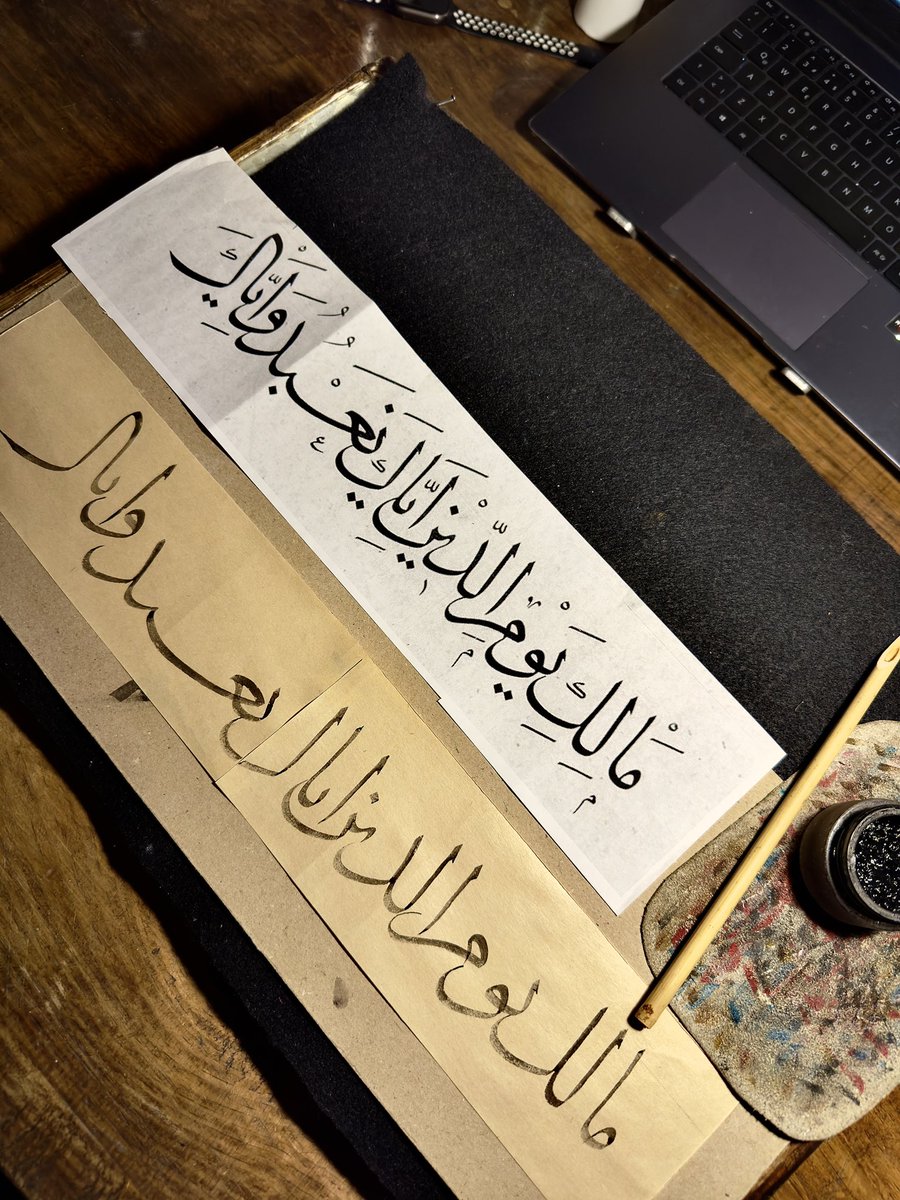 مَالِكِ يَوْمِ الدِّيْنِ اِيَّاكَ نَعْبُدُ وَاِيَّاكَ
مالك يوم الدين اياك نعبد واياك